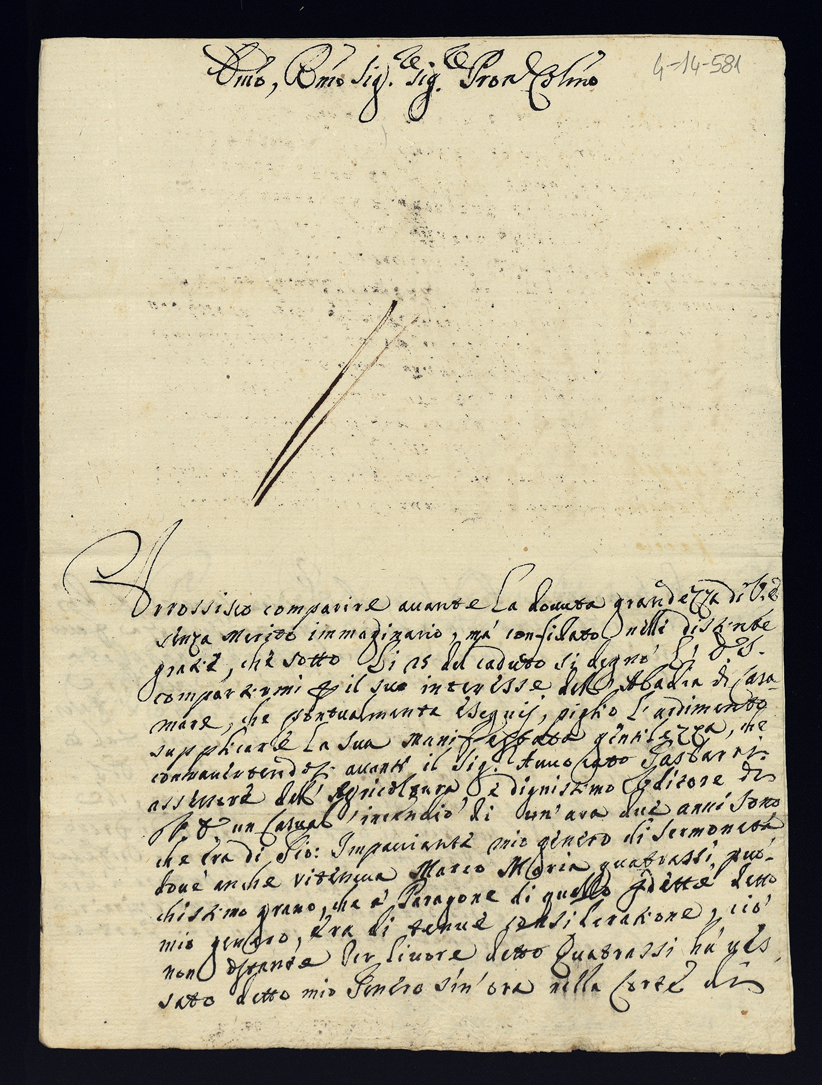 4-14-581
Emo, Rmo Sig.re Sig.re Pron Colmo
Arrossisco comparire auante La douuta grandezza di V.E.
senza merito immaginario, mà confidato nelle distinte
grazie, che sotto li 25 del caduto si degnò
compartirmi il suo interesse dell'Abadia di Casa-
mare, che pontualmente eseguij, piglio l'ardimento
supplicarle La sua manifestata gentilezza, che
auanti il Sig.
assessore dell'Agricoltura, e dignissimo Uditore di
un Casual' incendio di un'ara due anni sono
che era di Gio: mio genero di Sermoneta
doue anche riteneua Marco Maria quatrassi, puo-
chissimo grano, che a Paragone di quello detto
mio genero, era di tenue considerazione, ciò
non ostante Per liuore detto Quatrassi hà ues-
sato detto mio Genero sin'ora nella Corte di